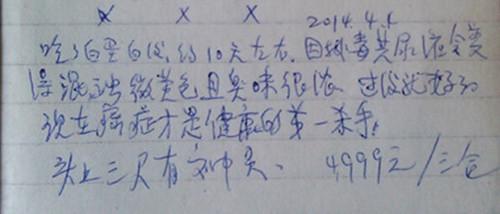 X X X 2014.4.1
吃了白蛋白后,约10天左右.因排毒其尿液会变
得混浊微黄色且臭味很浓 过后就好的
现在癌症才是健康的第一杀手.
头上三尺有神灵、 4999元/三盒